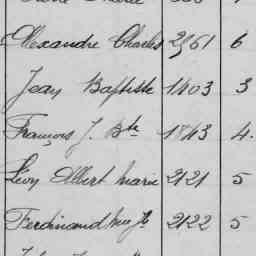 Alexandre Charles 2561 6
Jean Baptiste 1403 3
François J. Bte 1843 4.
Léon Albert Marie 2121 5
Ferdinand 2122 5